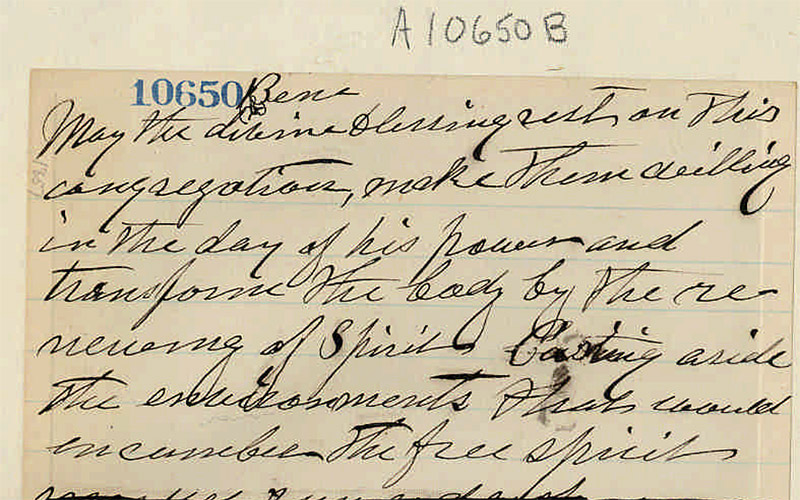 A10650B
10650 Bene
May the divine blessing rest on this
congregation, make them willing
in the day of his power and
transform the body by the re-
newing of Spirit Casting aside
the environments that would
encumber the free spirit